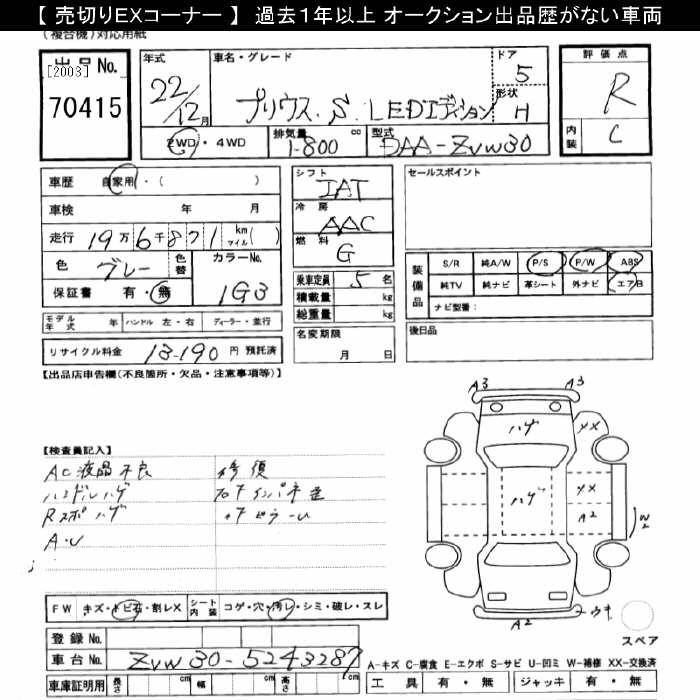 【 売切りEXコーナー 】 過去1年以上 オークション出品歴がない車両
(複合機)対応用紙
出品No.
[2003]
70415
年式
22/12月
車名・グレード
プリウス. S. LEDエディション
ドア
5
形状
H
2WD・4WD
排気量
1-800 cc
型式
DAA-ZVW30
評価点
R
内装
C
車歴 自家用・( )
車検 年 月
走行 19万6千871 km マイル( )
色 グレー 色替 カラーNo. 1G3
保証書 有・無
モデル年式 年 ハンドル 左・右 ディーラー・並行
リサイクル料金 13-190 円 預託済
シフト
IAT
冷房
AAC
燃料
G
乗車定員 5 名
積載量 kg
総重量 kg
名変期限
月 日
セールスポイント
装備品
S/R 純A/W P/S P/W ABS
純TV 純ナビ 革シート 外ナビ エアB
ナビ型番:
後日品
【出品店申告欄(不良箇所・欠品・注意事項等)】
【検査員記入】
AC液晶不良
ハンドルハゲ
RスポハゲA・U
修復
フロア
ピラーU
A3 A3
ハゲ XX
ハゲ XX
A2 W2
A2
スペア
FW キズ・トビ石・割レX シート内装 コゲ・穴・汚レ・シミ・破レ・スレ
登録No.
車台No. ZVW30-5243287
車庫証明用 長さ cm 幅 cm 高さ cm
A-キズ C-腐食 E-エクボ S-サビ U-凹ミ W-補修 XX-交換済
工具 有・無 ジャッキ 有・無